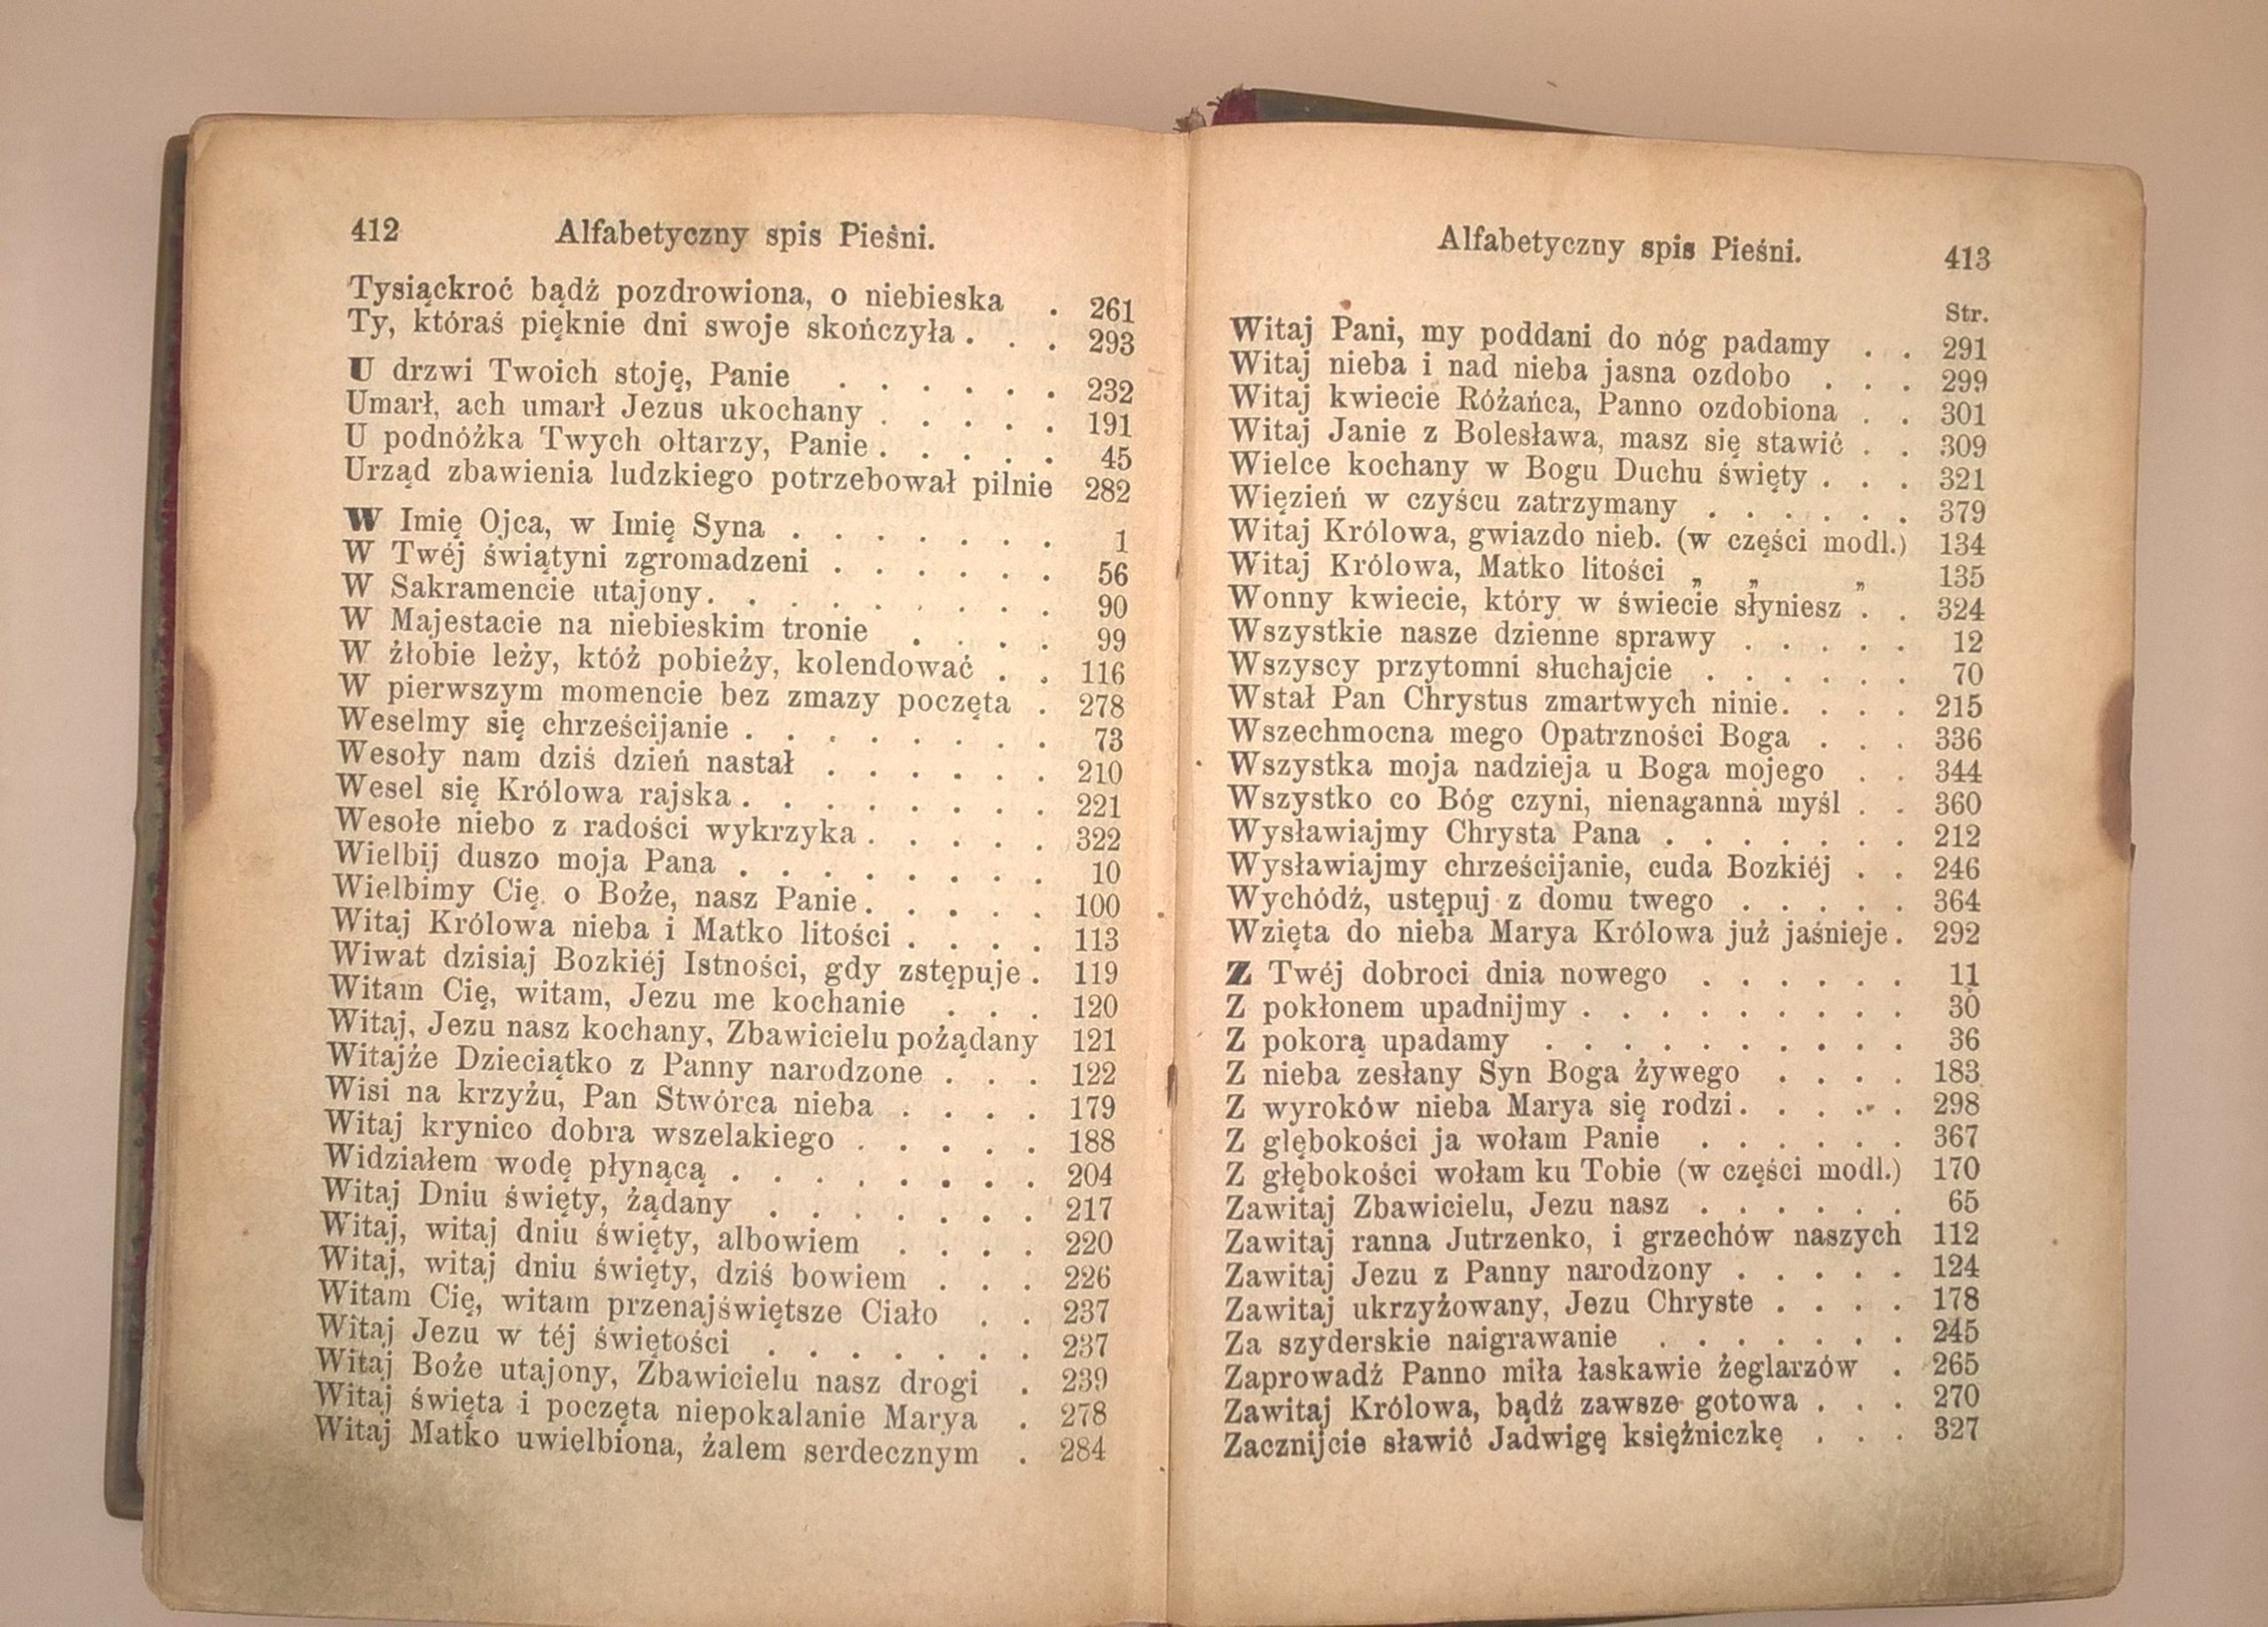 412 Alfabetyczny spis Pieśni.
Tysiąckroć bądź pozdrowiona, o niebieska . 261
Ty, któraś pięknie dni swoje skończyła . . . 293
U drzwi Twoich stoję, Panie . . . . . . 232
Umarł, ach umarł Jezus ukochany . . . . . 191
U podnóżka Twych ołtarzy, Panie . . . . . 45
Urząd zbawienia ludzkiego potrzebował pilnie 282
W Imię Ojca, w Imię Syna . . . . . . . 1
W Twéj świątyni zgromadzeni . . . . . . 56
W Sakramencie utajony . . . . . . . . . 90
W Majestacie na niebieskim tronie . . . . 99
W żłobie leży, któż pobieży, kolendować . . 116
W pierwszym momencie bez zmazy poczęta . 278
Weselmy się chrześcijanie . . . . . . . . 73
Wesoły nam dziś dzień nastał . . . . . . 210
Wesel się Królowa rajska . . . . . . . . 221
Wesołe niebo z radości wykrzyka . . . . . 322
Wielbij duszo moja Pana . . . . . . . . 10
Wielbimy Cię, o Boże, nasz Panie . . . . . 100
Witaj Królowa nieba i Matko litości . . . . 113
Wiwat dzisiaj Bozkiéj Istności, gdy zstępuje . 119
Witam Cię, witam, Jezu me kochanie . . . 120
Witaj, Jezu nasz kochany, Zbawicielu pożądany 121
Witajże Dzieciątko z Panny narodzone . . . 122
Wisi na krzyżu, Pan Stwórca nieba . . . . 179
Witaj krynico dobra wszelakiego . . . . . 188
Widziałem wodę płynącą . . . . . . . . 204
Witaj Dniu święty, żądany . . . . . . . 217
Witaj, witaj dniu święty, albowiem . . . . 220
Witaj, witaj dniu święty, dziś bowiem . . . 226
Witam Cię, witam przenajświętsze Ciało . . 237
Witaj Jezu w téj świętości . . . . . . . 237
Witaj Boże utajony, Zbawicielu nasz drogi . 239
Witaj święta i poczęta niepokalanie Marya . 278
Witaj Matko uwielbiona, żalem serdecznym . 284
Alfabetyczny spis Pieśni. 413
Str.
Witaj Pani, my poddani do nóg padamy . . 291
Witaj nieba i nad nieba jasna ozdobo . . . 299
Witaj kwiecie Różańca, Panno ozdobiona . . 301
Witaj Janie z Bolesława, masz się stawić . . 309
Wielce kochany w Bogu Duchu święty . . . 321
Więzień w czyścu zatrzymany . . . . . . 379
Witaj Królowa, gwiazdo nieb. (w części modl.) 134
Witaj Królowa, Matko litości „ „ „ 135
Wonny kwiecie, który w świecie słyniesz . . 324
Wszystkie nasze dzienne sprawy . . . . . 12
Wszyscy przytomni słuchajcie . . . . . . 70
Wstał Pan Chrystus zmartwych ninie . . . . 215
Wszechmocna mego Opatrzności Boga . . . 336
Wszystka moja nadzieja u Boga mojego . . 344
Wszystko co Bóg czyni, nienaganna myśl . . 360
Wysławiajmy Chrysta Pana . . . . . . . 212
Wysławiajmy chrześcijanie, cuda Bozkiéj . . 246
Wychódź, ustępuj z domu twego . . . . . 364
Wzięta do nieba Marya Królowa już jaśnieje . 292
Z Twéj dobroci dnia nowego . . . . . . 11
Z pokłonem upadnijmy . . . . . . . . . 30
Z pokorą upadamy . . . . . . . . . . 36
Z nieba zesłany Syn Boga żywego . . . . 183
Z wyroków nieba Marya się rodzi . . . . . 298
Z głębokości ja wołam Panie . . . . . . 367
Z głębokości wołam ku Tobie (w części modl.) 170
Zawitaj Zbawicielu, Jezu nasz . . . . . . 65
Zawitaj ranna Jutrzenko, i grzechów naszych 112
Zawitaj Jezu z Panny narodzony . . . . . 124
Zawitaj ukrzyżowany, Jezu Chryste . . . . 178
Za szyderskie naigrawanie . . . . . . . 245
Zaprowadź Panno miła łaskawie żeglarzów . 265
Zawitaj Królowa, bądź zawsze gotowa . . . 270
Zacznijcie sławić Jadwigę księżniczkę . . . 327